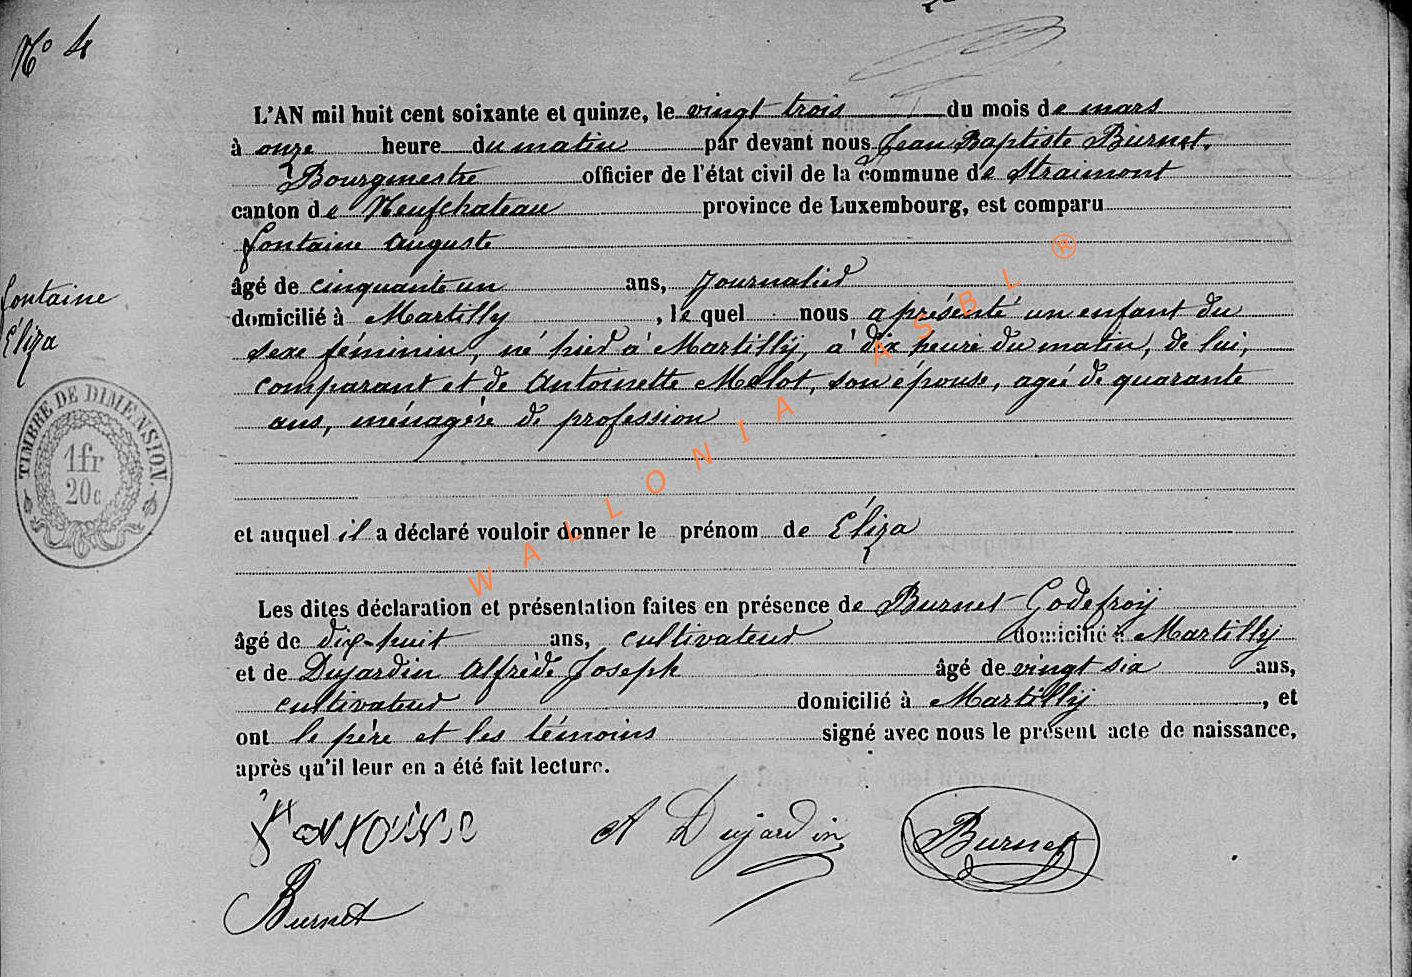 N° 4
L'AN mil huit cent soixante et quinze, le vingt trois du mois de mars
à onze heure du matin par devant nous Jean Baptiste Burnet,
Bourgmestre officier de l'état civil de la commune de Straimont
canton de Neufchateau province de Luxembourg, est comparu
fontaine Auguste
âgé de cinquante un ans, Journalier
domicilié à Martilly, le quel nous a présenté un enfant du
sexe féminin, né hier à Martilly, à dix heure du matin, de lui,
comparant et de Antoinette Melot, son épouse, agée de quarante
ans, ménagère de profession
et auquel il a déclaré vouloir donner le prénom de Éliza
Les dites déclaration et présentation faites en présence de Burnet Godefroij
âgé de dix-huit ans, cultivateur domicilié à Martilly
et de Dujardin Alfrède Joseph âgé de vingt six ans,
cultivateur domicilié à Martilly, et
ont le père et les témoins signé avec nous le présent acte de naissance,
après qu'il leur en a été fait lecture.
fontaine
Éliza
TIMBRE DE DIMENSION.
1fr
20c
WALLONIA ASBL ®
A Dujardin
Burnet
Burnet